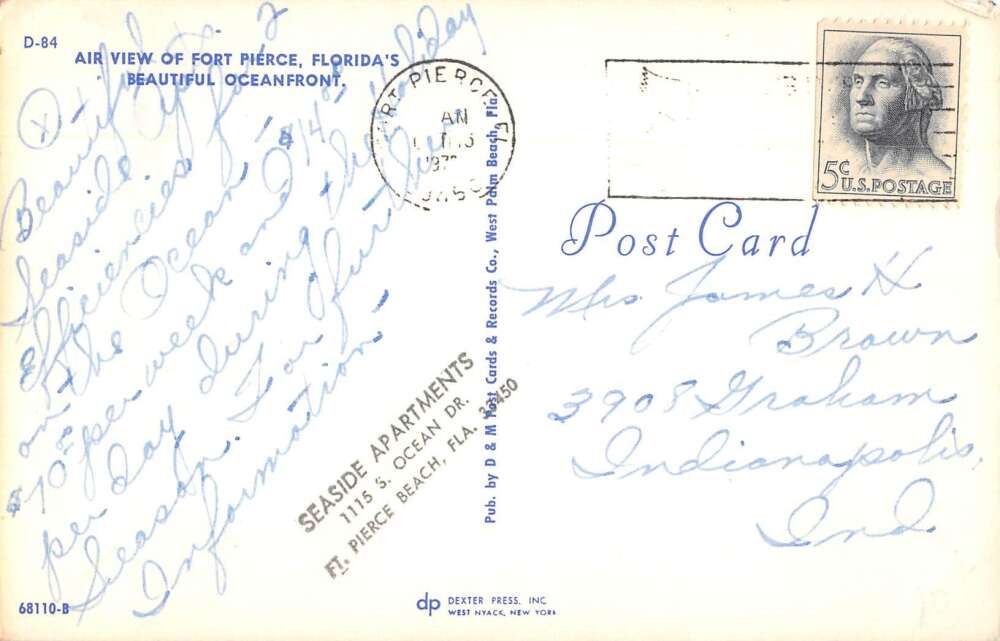 D-84
AIR VIEW OF FORT PIERCE, FLORIDA'S
BEAUTIFUL OCEANFRONT.
Beautiful
Seaside Apts. for 2
Efficiencies
on the Ocean
$70.00 per week and $14.00
per day during the holiday
Season. For further
Information
SEASIDE APARTMENTS
1115 S. OCEAN DR.
FT. PIERCE BEACH, FLA. 33450
68110-B
Pub. by D & M Post Cards & Records Co., West Palm Beach, Fla.
dp DEXTER PRESS, INC.
WEST NYACK, NEW YORK
FORT PIERCE, FL
AN
5¢
U.S. POSTAGE
Post Card
Mrs James H
Brown
3908 Graham
Indianapolis,
Ind